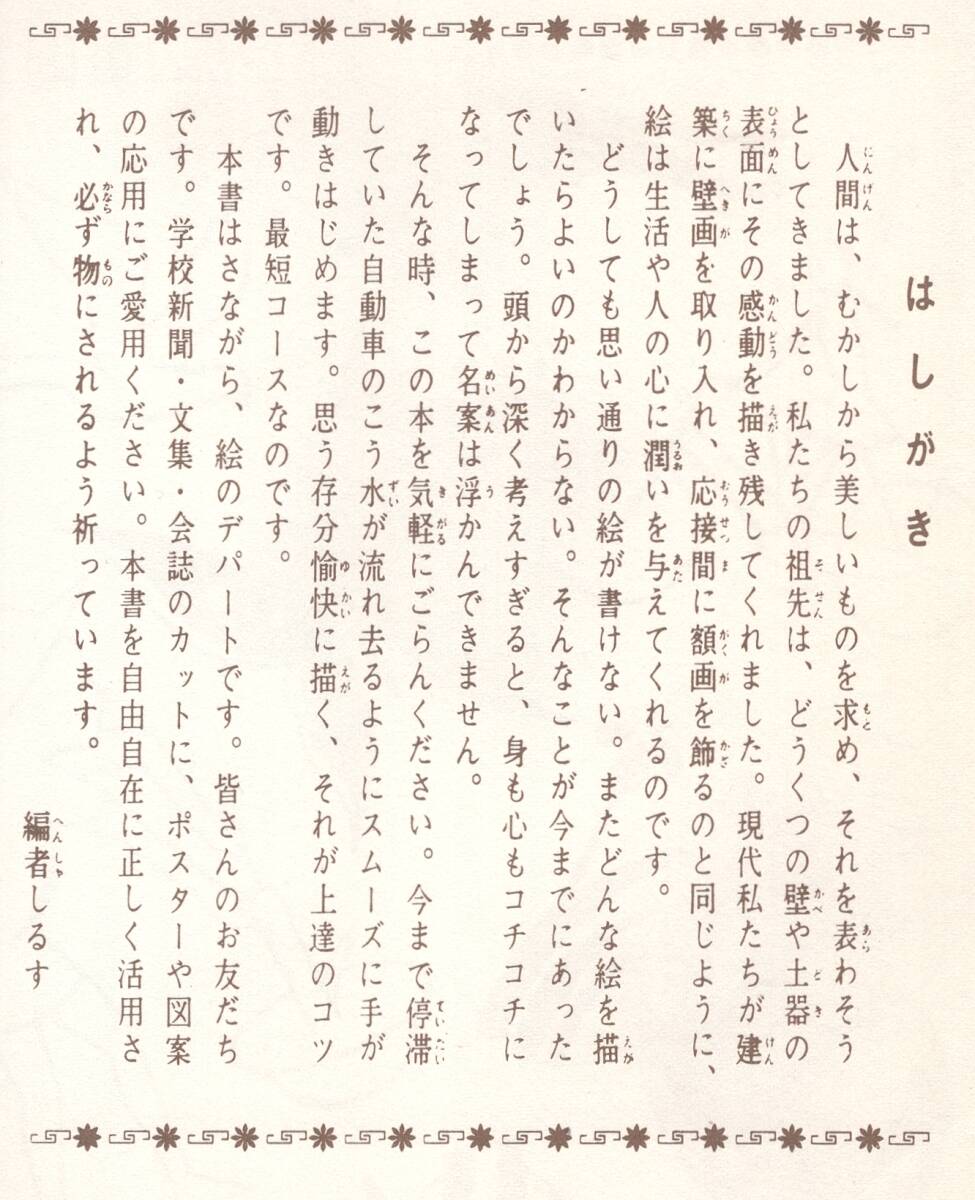 はしがき
人間は、むかしから美しいものを求め、それを表わそう
としてきました。私たちの祖先は、どうくつの壁や土器の
表面にその感動を描き残してくれました。現代私たちが建
築に壁画を取り入れ、応接間に額画を飾るのと同じように、
絵は生活や人の心に潤いを与えてくれるのです。
どうしても思い通りの絵が書けない。またどんな絵を描
いたらよいのかわからない。そんなことが今までにあった
でしょう。頭から深く考えすぎると、身も心もコチコチに
なってしまって名案は浮かんできません。
そんな時、この本を気軽にごらんください。今まで停滞
していた自動車のこう水が流れ去るようにスムーズに手が
動きはじめます。思う存分愉快に描く、それが上達のコツ
です。最短コースなのです。
本書はさながら、絵のデパートです。皆さんのお友だち
です。学校新聞・文集・会誌のカットに、ポスターや図案
の応用にご愛用ください。本書を自由自在に正しく活用さ
れ、必ず物にされるよう祈っています。
編者しるす